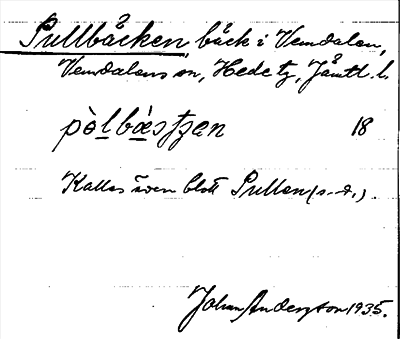 Pullbäcken, bäck i Vemdalen,
Vemdalens sn, Hede tg, Jämtl. l.
pòlbæstʒen 18
Kallas även blott Pullen (s. d.).
Johan Anderzton 1935.